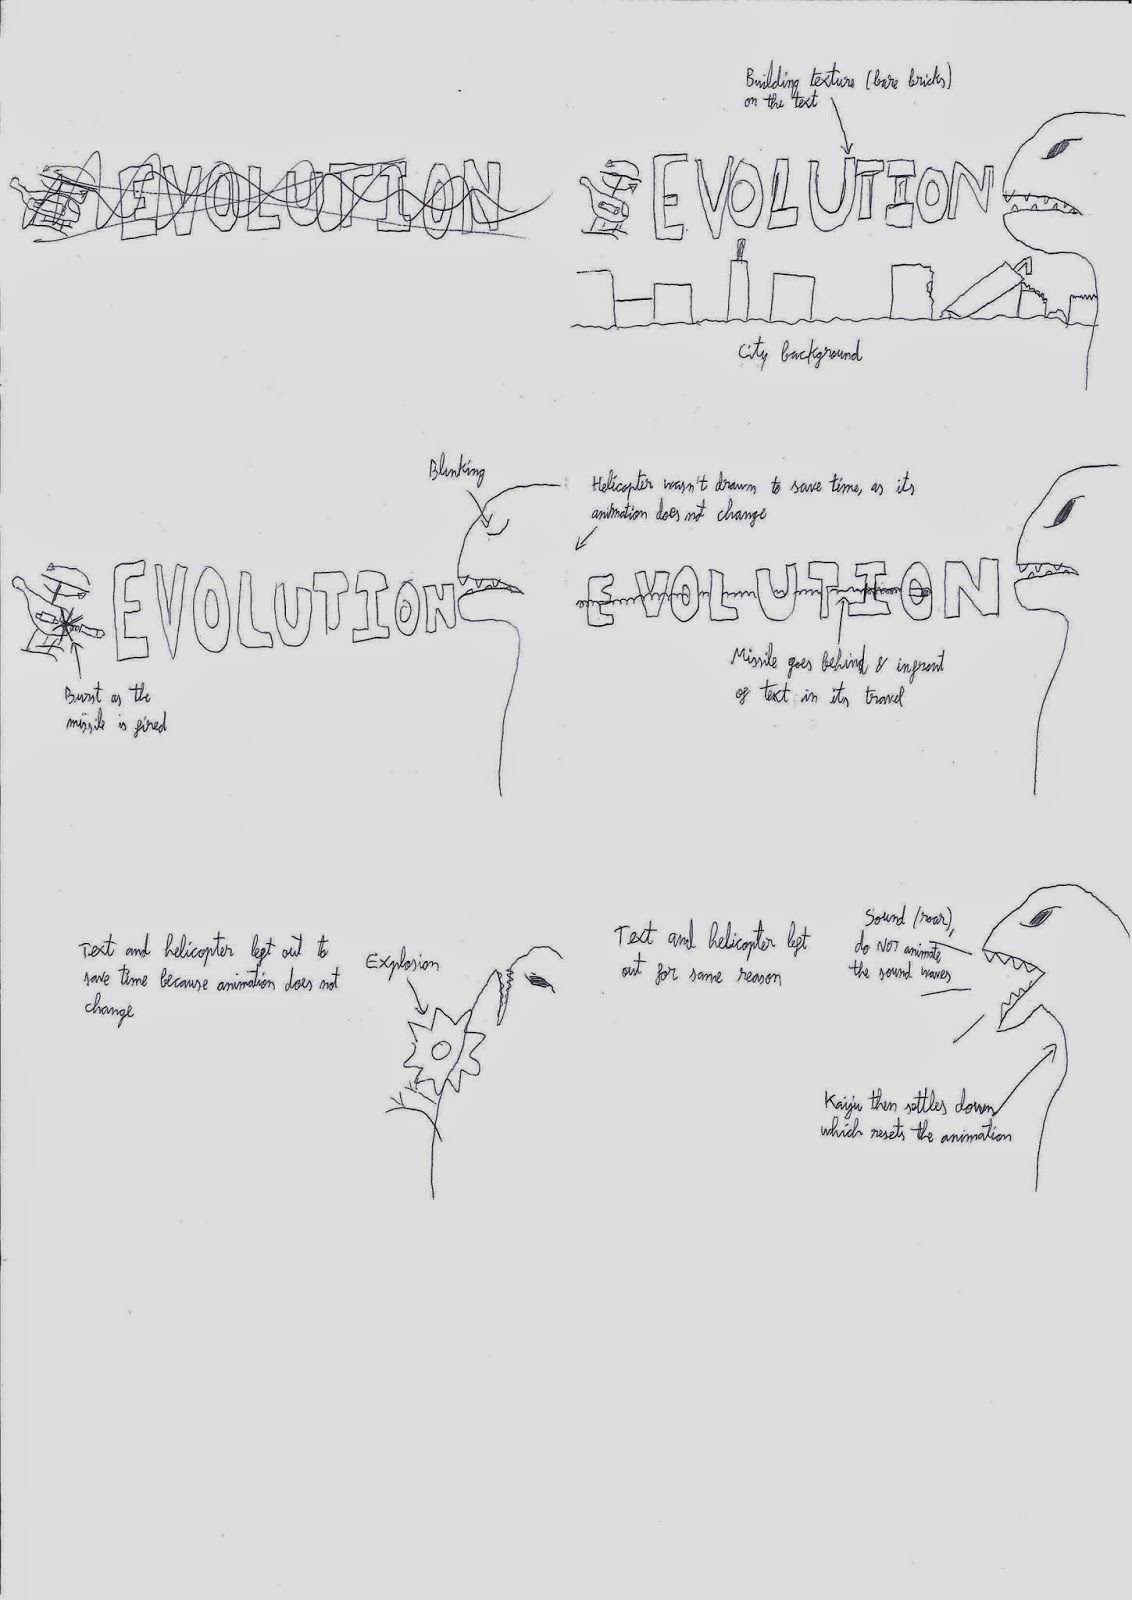 EVOLUTION
Building texture (bare bricks)
on the text
EVOLUTION
City background
Blinking
EVOLUTION
Burst as the
missile is fired
Helicopter wasn't drawn to save time, as its
animation does not change
EVOLUTION
Missile goes behind & infront
of text in its travel
Text and helicopter left out to
save time because animation does not
change
Explosion
Text and helicopter left
out for same reason
Sound (roar),
do NOT animate
the sound waves
Kaiju then settles down
which resets the animation